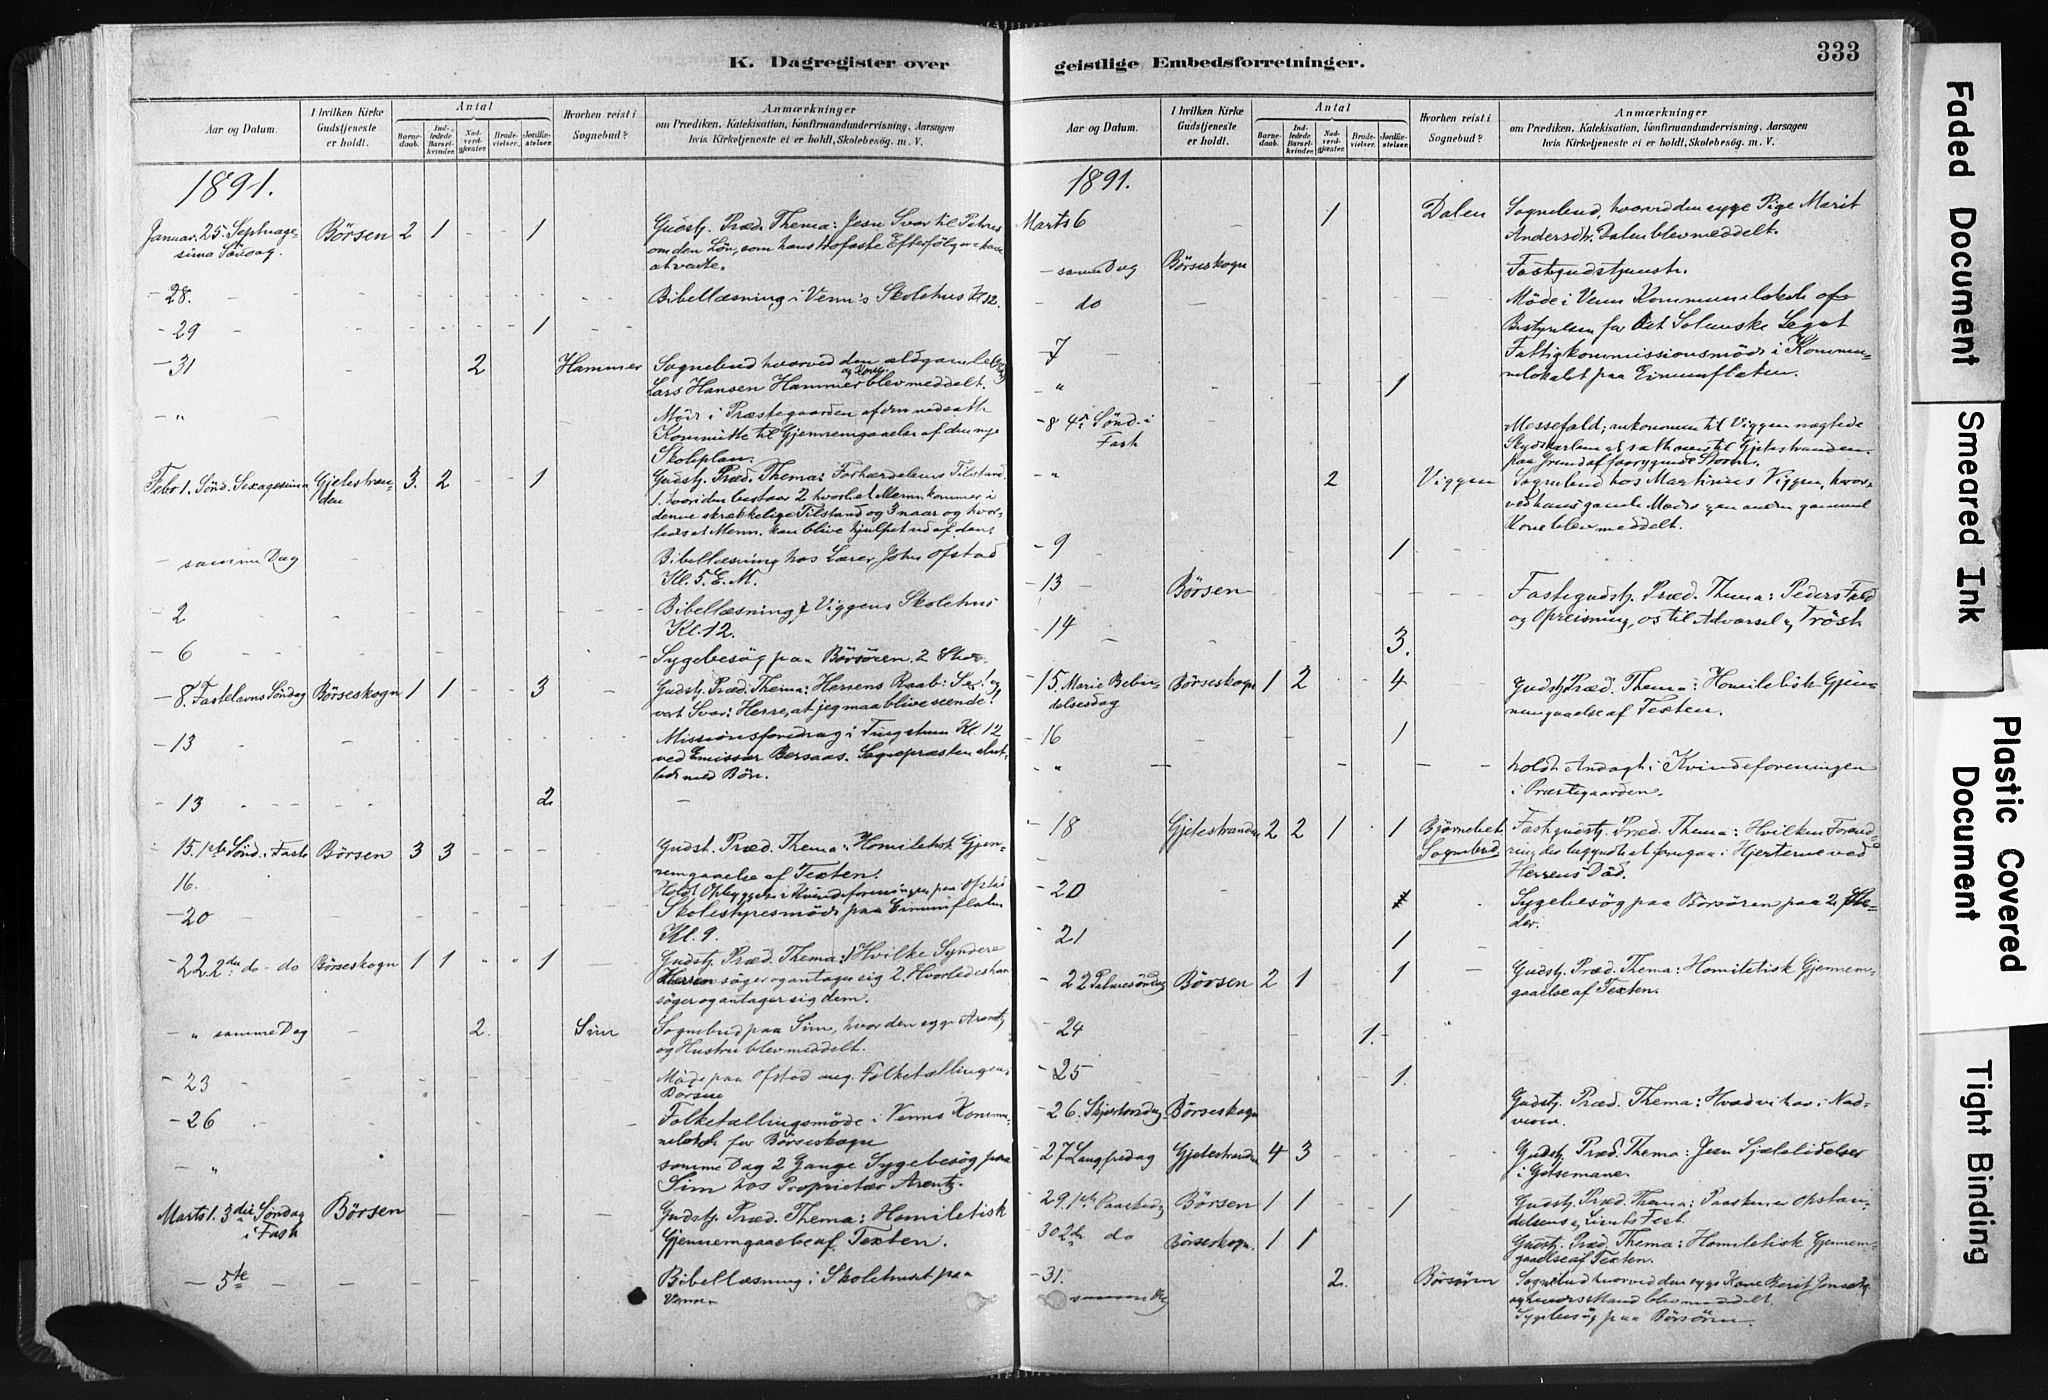 K. Dagregister over
Aar og Datum.
I hvilken Kirke Gudstjeneste er holdt.
Antal
Barnedaab.
Indledede Barselkvinder.
Nadverdgjester.
Brudevielser.
Jordfæstelser.
Hvorhen reist i Sognebud?
Anmærkninger
om Prædiken, Katekisation, Konfirmandundervisning, Aarsagen
hvis Kirketjeneste ei er holdt, Skolebesøg. m. V.
1891.
Januar. 25. Septuage- Börsen 2 1 - - 1
sima Söndag.
Gudstj. Præd. Thema: Jesu Svar til Petrus
om den Lön, som hans
atvente.
- 28. Bibellæsning i Venn's Skolehus Kl 12.
- 29 1
- 31 2 Hammer Sognebud hvorved den ældgamle
Lars Hansen Hammer blev meddelt.
" Möde i Præstegaarden af den nedsatte
Kommitte til Gjennemgaaelse af den nye
Skoleplan.
Febr 1. Sönd. Sexagesima Gjetestran- 3. 2 - - 1
den
Gudstj. Præd. Thema: Forhærdelsens Tilstand
1. hvori den bestaar 2 hvorledes Menn. kommer i
denne skrækkelige Tilstand og 3 naar og hvor-
ledes et Menn. kan blive hjulpet ud af den.
- samme Dag Bibellæsning hos Lærer John Ofstad
Kl. 5. E. M.
- 2 Bibellæsning i Viggens Skolehus
Kl. 12.
- 6 Sygebesög paa Börsören. 2
- 8. Fastelavns Söndag Börseskogn 1 1 - - 3
Gudstj. Præd. Thema: Herrens Raab: Se! og
vort Svar: Herre, at jeg maa blive seende!
- 13 Missionsforedrag i Tingstuen Kl. 12
ved Emissær Bersaas. Sognepræsten slut-
tede med Bön.
- 13 2
- 15. 1ste Sönd. i Faste Börsen 3 3
Gudst. Præd. Thema: Homiletisk Gjen-
nemgaaelse af Texten.
16. Holdt Opbyggelse i Kvindeforeningen paa Ofstad
- 20 Skolestyresmöde paa Eimumflaten
Kl. 9.
- 22. 2den do - do Börseskogn 1 1 " " 1
Gudstj. Præd. Thema: 1 Hvilke Syndere
Herren söger og antager sig 2. Hvorledes han
söger og antager sig dem.
- " samme Dag 2. Sim Sognebud paa Sim, hvor den syge Arentz
og Hustru blev meddelt.
- 23 Möde paa Ofstad ang. Folketællingen i
Börsen
- 26 Folketællingsmöde i Venns Kommu-
nelokale for Börseskogn
- " samme Dag 2 Gange Sygebesög paa
Sim hos Proprietær Arentz.
Marts 1. 3die Söndag Börsen
i Faste
Gudstj. Præd. Thema: Homiletisk
Gjennemgaaelse af Texten.
- 5te Bibellæsning i Skolehuset paa
Venn.
geistlige Embedsforretninger.
333
Aar og Datum.
I hvilken Kirke Gudstjeneste er holdt.
Antal
Barnedaab.
Indledede Barselkvinder.
Nadverdgjester.
Brudevielser.
Jordfæstelser.
Hvorhen reist i Sognebud?
Anmærkninger
om Prædiken, Katekisation, Konfirmandundervisning, Aarsagen
hvis Kirketjeneste ei er holdt, Skolebesøg. m. V.
1891.
Marts 6 1 Dalen Sognebud, hvorved den syge Pige Marit
Andersdt. Dalen blev meddelt.
- samme Dag Börseskogn Fastegudstjeneste.
- do Möde i Venn Kommunelokale af
Bestyrelsen for det Solemske Legat
- 7 Fattigkommissionsmöde i Kommu-
nelokalet paa Eimumflaten.
" 1
- 8 4de Sönd. i
Faste
Messefald; ankommen til Viggen nægtede
Skydskarlene at sætte mig til Gjetestranden
paa Grund af foorygende Storm.
" 2 Viggen Sognebud hos Martinus Viggen, hvor-
ved hans gamle Moder og en anden gammel
Kone blev meddelt.
- 9 1
- 13 Börsen Fastegudstj. Præd. Thema: Peders Fald
og Opreisning, os til Advarsel og Tröst
- 14 3.
- 15. Marie Bebu- Börseskogn 1 2 4
delsesdag
Gudstj. Præd. Thema: Homiletisk Gjen-
nemgaaelse af Texten.
- 16 1
" holdt Andagt i Kvindeforeningen
i Præstegaarden.
- 18 Gjetestranden 2 2 1 1 Björnebet
Sognebud
Fastegudstj. Præd. Thema: Hvilken Forand-
ring der begyndte at foregaa i Hjerterne ved
Herrens Död.
- 20 Sygebesög paa Börsören paa 2 Ste-
der.
- 21 1
- 22 Palmesöndag Börsen 2 1 1
Gudstj. Præd. Thema: Homiletisk Gjennem-
gaaelse af Texten.
- 24 1.
- 25 1.
- 26. Skjærtorsdag Börseskogn Gudstj. Præd. Thema: Hvad vi har i Nad-
veren.
- 27 Langfredag Gjetestranden 4 3 Gudstj. Præd. Thema: Jesu Sjælelidelser
i Getsemane.
- 29. 1ste Paaskedag Börsen 1 1 1 Gudstj. Præd. Thema: Paasken er Opstan-
delsens og Livets Fest.
- 30 2den do Börseskogn. 1 1 Gudstj. Præd. Thema: Homiletisk Gjennem-
gaaelse af Texten.
- 31. 2. Börsören Sognebud hvorved den syge Kone Berit
og hendes Mand blev meddelt.
samme Dag Sygebesög paa Börsören.
Faded Document
Smeared Ink
Plastic Covered Document
Tight Binding